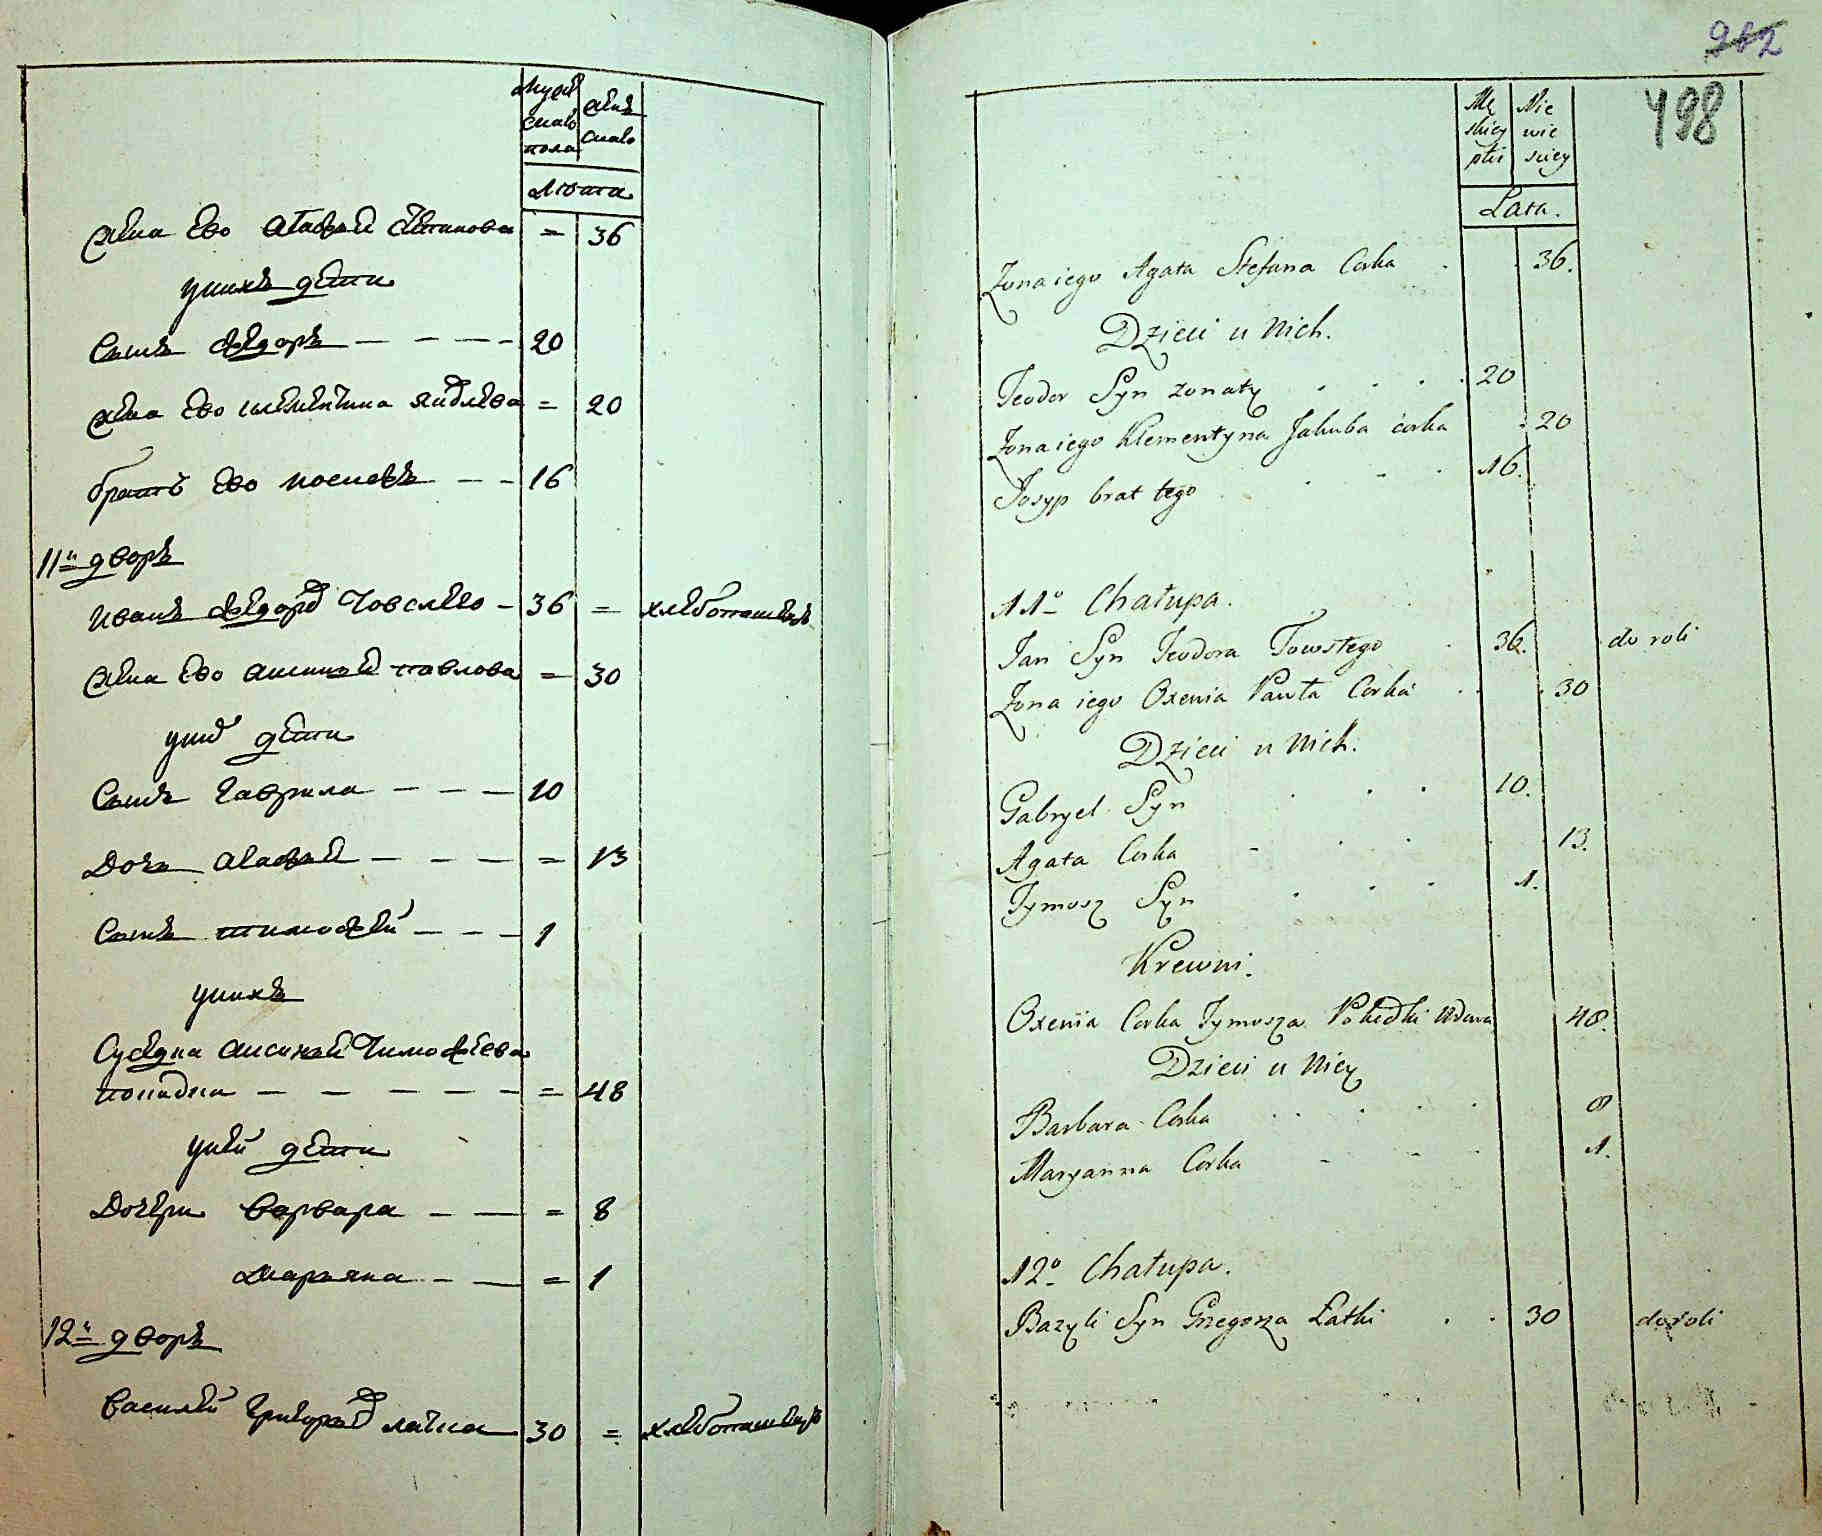 Мужеска пола
Женска
Лѣта
Жена Ево Агафия Степанова = 36
у нихъ дети
Сынъ Федоръ — — — — 20
Жена Ево Яковлева = 20
братъ Ево Иосифъ — — 16
11й дворъ
Иванъ Федоровъ Товстого — 36 = хлебопашецъ
Жена Ево Аксиния Павлова = 30
у них дети
Сынъ Гаврила — — — 10
Дочь Агафия — — — = 13
Сынъ Тимофей — — — 1
у нихъ
Суседка Аксиния Тимофеева
— — — — — = 48
у ней дети
Дочери Варвара — — = 8
Марьяна — — = 1
12й дворъ
Василей Григорьевъ Латка 30 = хлебопашецъ
212
498
Mę skiey płci
Nie wie sciey
Lata.
Zona iego Agata Stefana Corka 36.
Dzieci u Nich.
Teodor Syn zonaty 20
Zona iego Klementyna Jakuba corka 20
Josyp brat tego 16.
11o Chałupa.
Jan Syn Teodora Towstego 36. do roli
Zona iego Oxenia Pawła Corka 30
Dzieci u Nich.
Gabryel Syn 10.
Agata Corka 13.
Tymosz Syn 1.
Krewni.
Oxenia Corka Tymosza Wdowa 48.
Dzieci u Niey
Barbara Corka 8
Maryanna Corka 1.
12o Chałupa.
Bazyli Syn Grzegorza Łatki 30 do roli